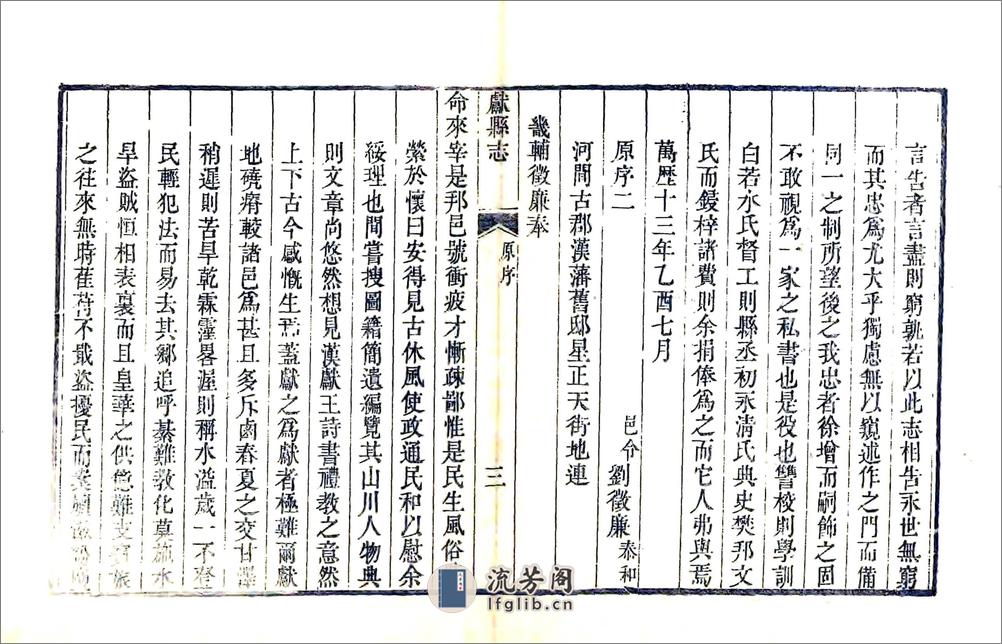 言告者言盡則窮孰若以此志相告永世無窮
而其忠爲尤大乎獨慮無以窺述作之門而備
同一之制所望後之我忠者徐增而嗣飾之固
不敢視爲一家之私書也是役也讐梭則學訓
白若水氏督工則縣丞初永清氏典史樊邦文
氏而鋟梓諸費則余捐俸爲之而它人弗與焉
萬歷十三年乙酉七月
原序二 邑令 劉徵廉 泰和
河間古郡漢藩舊邸星正天街地連
畿輔徵廉奉
獻縣志 原序 三
命來宰是邦邑號衝疲才慚疎鄙惟是民生風俗
縈於懷曰安得見古休風使政通民和以慰余
綏理也間嘗搜圖籍簡遺編覽其山川人物典
則文章尚悠然想見漢獻王詩書禮教之意然
上下古今感慨生焉蓋獻之爲獻者極難爾獻
地磽瘠較諸邑爲甚且多斥鹵春夏之交甘澤
稍遲則苦旱乾霖霪畧渥則稱水溢歲一不登
民輕犯法而易去其鄉追呼綦難教化莫施水
旱盜賊恒相表裏而且皇華之供億難支賓旅
之往來無時萑苻不戢盜擾民而
流芳阁
lfglib.cn